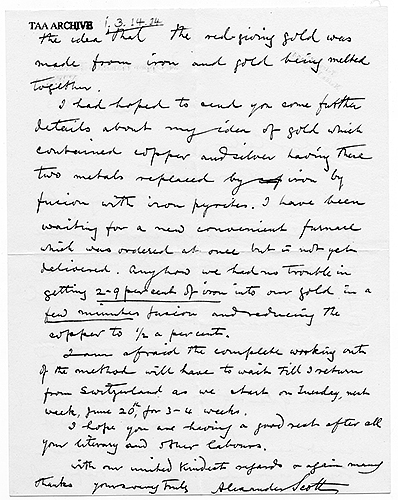 TAA ARCHIVE 1.3.14.24
the idea that the red-giving gold was
made from iron and gold being melted
together.
I had hoped to send you some further
details about my idea of gold which
contained copper and silver having these
two metals replaced by iron by
fusion with iron pyrites. I have been
waiting for a new convenient furnace
which was ordered at once but is not yet
delivered. Anyhow we had no trouble in
getting 2-9 per cent of iron into our gold in a
few minutes fusion and reducing the
copper to ½ a percent.
I am afraid the complete working out
of the method will have to wait till I return
from Switzerland as we start on Tuesday, next
week, June 20th, for 3-4 weeks.
I hope you are having a good rest after all
your literary and other labours.
With our united kindest regards & again many
thanks yours very truly Alexander Scott